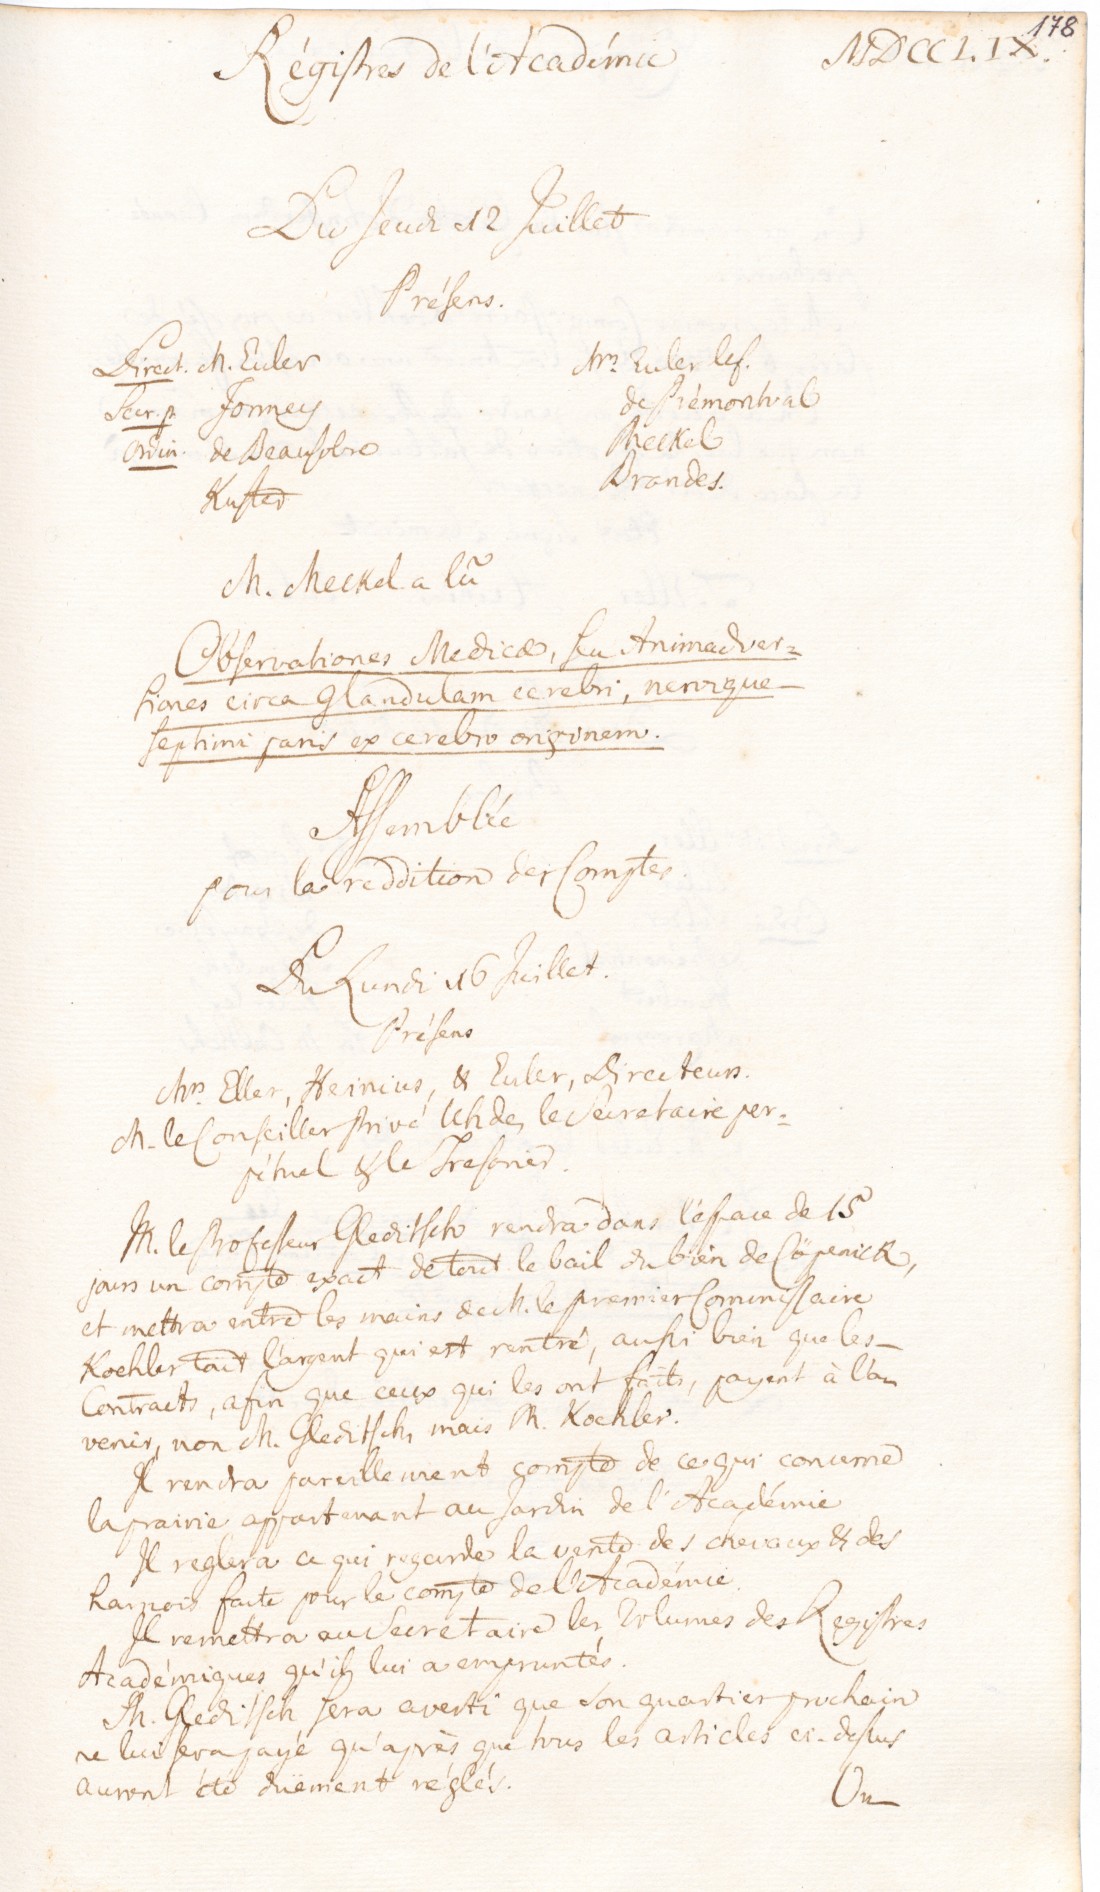 178
Régistres de l'Académie MDCCLIX.
Du Jeudi 12 Juillet
Présens.
Direct. M. Euler Mrs Euler le f.
Secr. p. Formey de Prémontval
Ordin. de Beausobre Meckel
Kuster Brandes.
M. Meckel a lû
Observationes Medicæ, seu Animadver=
siones circa Glandulam cerebri, nervique
septimi paris ex cerebro originem.
Assemblée
pour la reddition des Comptes.
Du Lundi 16 Juillet.
Présens
Mrs. Eller, Heinius, & Euler, Directeurs.
M. le Conseiller Privé Uhden, le Secretaire per=
pétuel & le Tresorier.
M. le Professeur Gleditsch rendra dans l'espace de 15
jours un compte exact de tout le bail du bien de Cöpenick,
et mettra entre les mains de M. le premier Commissaire
Koehler tout l'argent qui est rentré, aussi bien que les
Contracts, afin que ceux qui les ont faits, payent à l'a
venir, non M. Gleditsch, mais M. Koehler.
Il rendra pareillement compte de ce qui concerne
la prairie appartenant au Jardin de l'Académie
Il reglera ce qui regarde la vente des chevaux & des
harnois faite pour le compte de l'Académie.
Il remettra au Secretaire les Volumes des Registres
Académiques qu'il lui a empruntés.
M. Gleditsch sera averti que son quartier prochain
ne lui sera payé qu'après que tous les articles ci-dessus
auront été düement réglés.
On